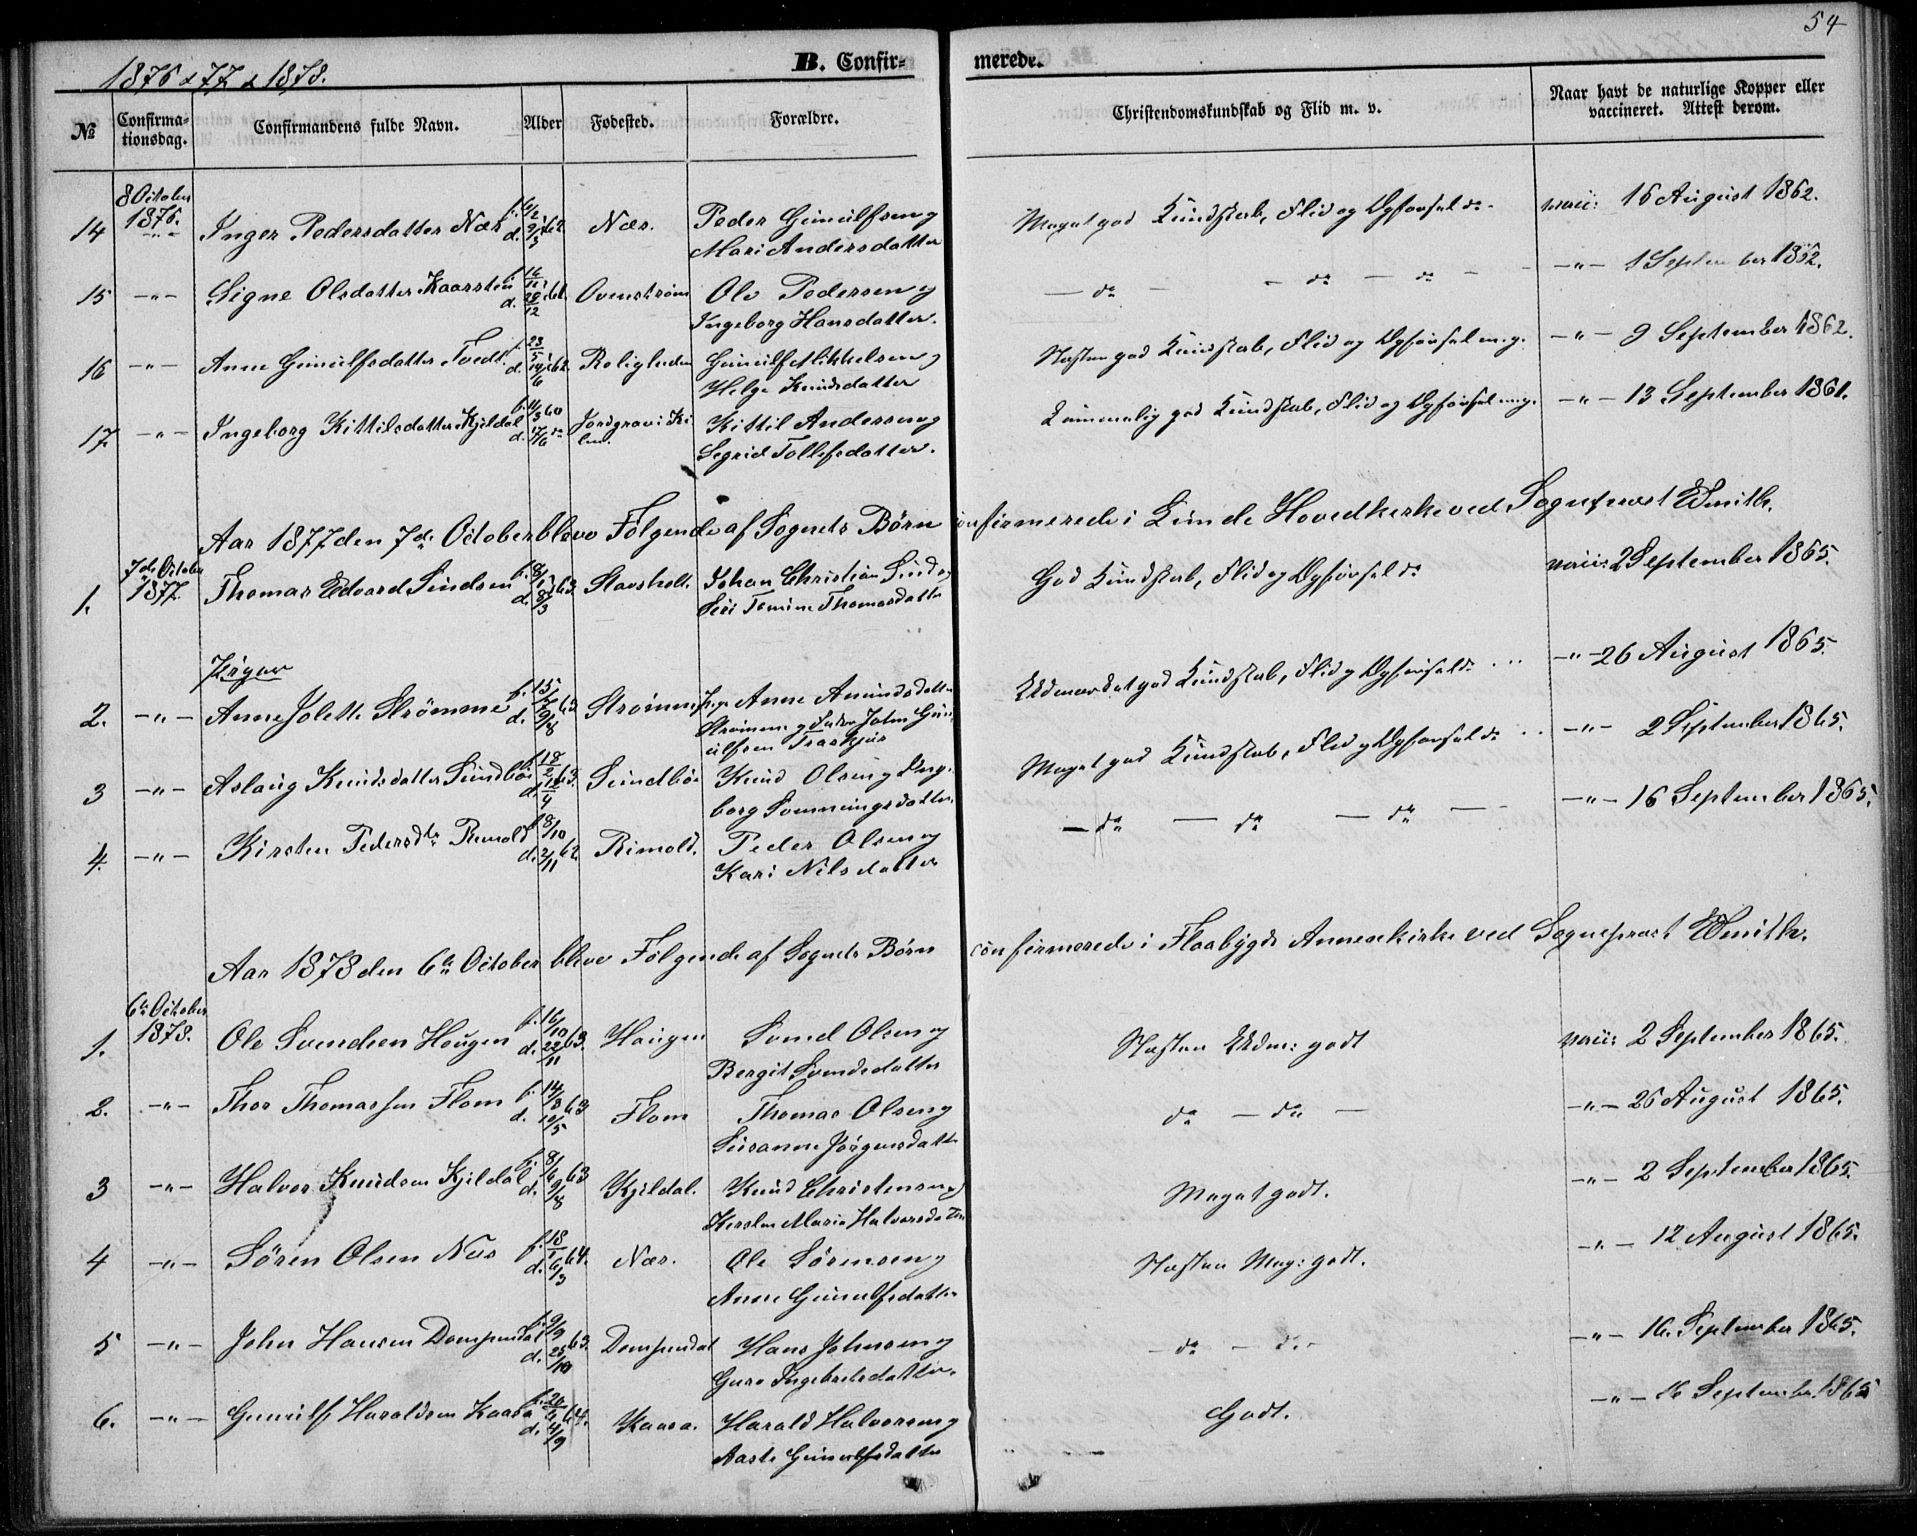 54
1876 & 77 & 1878.
B. Confirmerede.
No
Confirmationsdag.
Confirmandens fulde Navn.
Alder
Fødested.
Forældre.
Christendomskundskab og Flid m. v.
Naar havt de naturlige Kopper eller vaccineret. Attest derom.
8 October 1876.
14 -"- Inger Pedersdatter Næs d. 9/3 62. Næs. Peder Gunulfsen og Mari Andersdatter Meget god Kundskab, Flid og Opførsel do vacc: 16 August 1862.
15 -"- Signe Olsdatter Kaarstein d. 28/12 61. Ovenstrøm Ole Pedersen og Ingeborg Hansdatter. - do - - do - do - -"- 1 September 1862.
16 -"- Anne Gunulfsdatter Tvedt f. 23/5 62. Roligheden Gunulf Mikkelsen og Helge Knudsdatter Næsten god Kundskab, Flid og Opførsel m.g. -"- 9 September 1862.
17 -"- Ingeborg Kittilsdatter Kjeldal f. 11/3 60 d. 17/6 do Kittil Andersen og Segrid Tollefsdatter. Temmelig god Kundskab, Flid og Opførsel m.g. -"- 13 September 1861.
Aar 1877 den 7de October bleve Følgende af Sognets Børn confirmerede i Lunde Hovedkirke ved Sognepræst Wmith.
7de October 1877
1. Thomas Edvard Sindsen f. 8/1 63. Slaosholt. Johan Christian Sinds og Siri Tomine Thomasdatter God Kundskab, Flid og Opførsel do vacc: 2 September 1865.
Piger
2. -"- Anne Jolette Strømme 63 Strømme Anne Amundsdatter Strømme og Johan Gunulfsen Traskjær Udmærket god Kundskab, Flid og Opførsel do -"- 26 August 1865.
3 -"- Aslaug Knudsdatter Sundbø f. 18/2 63. d. 12/4 Sundbø Knud Olsen og Ingeborg Sonnungsdatter. Meget god Kundskab, Flid og Opførsel do -"- 2 September 1865.
4. -"- Kirsten Pedersdtr Rimold f. 8/10 62. d. 2/11 Rimold. Peder Olsen og Kari Nilsdatter - do - do - do - -"- 16 September 1865.
Aar 1878 den 6te October bleve Følgende af Sognets Børn confirmerede i Flaabygds Annexkirke ved Sognepræst Wmith.
6te October 1878.
1. Ole Svendsen Hougen f. 16/10 63. d. 22/11 Haugen Svend Olsen og Bergit Svendsdatter Næsten Udm: godt vacc: 2 September 1865.
2. -"- Thor Thomassen Flom f. 14/3 63 d. 10/5 Flom Thomas Olsen og Susanne Jørgensdatter do - do - -"- 26 August 1865.
3 -"- Halvor Knudsen Kjeldal f. 8/6 63 d. 9/8 Kjeldal. Knud Christensen og Kirsten Marie Halvorsdatter Meget godt. -"- 2 September 1865.
4 -"- Søren Olsen Næs f. 18/1 64. d. 6/3 Næs. Ole Sørensen og Anne Gunulfsdatter Næsten Meg: godt. -"- 12 August 1865.
5 -"- John Hansen Dompendal f. 9/9 63. d. 25/10 Dompendal Hans Johnsen og Guro Ingebretsdatter. - do - do - -"- 16 September 1865.
6. -"- Gunulf Haraldsen Kaasa f. 20/6 64. d. 4/9 Kaasa. Harald Halvorsen og Aaste Gunulfsdatter Godt. -"- 16 September 1865